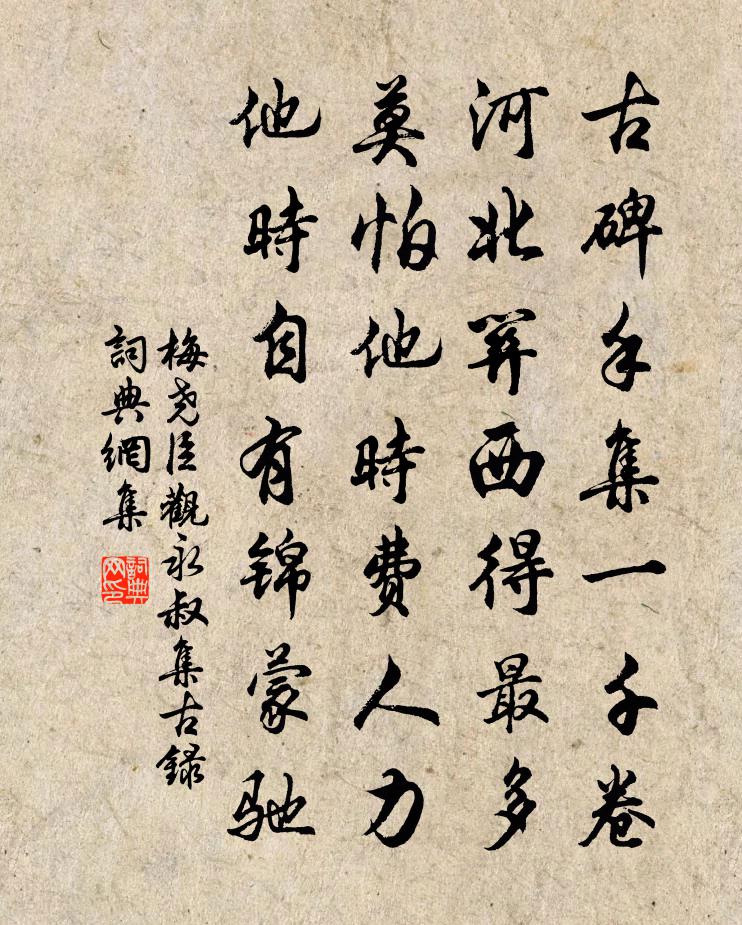 古碑手集一千卷
河北關西得最多
莫怕他時費人力
他時自有錦蒙馳
梅堯臣觀永叔集古録
詞典網集
詞典网印